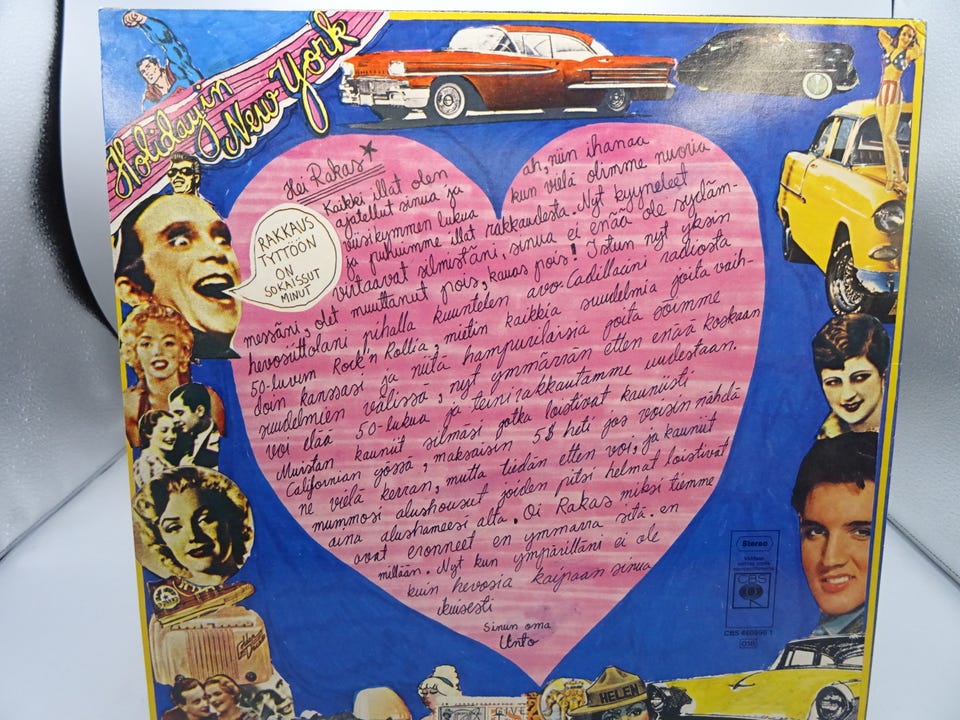 Holiday in
New York
Hei Rakas
Kaikki illat olen
ajatellut sinua ja
viisikymmen lukua
ja puhuimme illat rakkaudesta. Nyt kyyneleet
ah, niin ihanaa
kun vielä olimme nuoria
virtaavat silmistäni, sinua ei enää ole sydäm-
messäni, olet muuttanut pois, kauas pois! Istun nyt yksin
hevostittolani pihalla kuuntelen avo Cadillacini radiosta
50-luvun Rock'n Rollia, mietin kaikkia suudelmia joita vaih-
doin kanssasi ja niitä hampurilaisia joita söimme
suudelmien välissä, nyt ymmärrän etten enää koskaan
voi elää 50-lukua ja teinirakkauttamme uudestaan.
Muistan kauniit silmäsi jotka loistivat kauniisti
Californian yössä, maksaisin 5$ heti jos voisin nähdä
ne vielä kerran, mutta tiedän etten voi, ja kauniit
mummosi alushousut joiden pitsi helmat loistivat
aina alushameesi alta. Oi Rakas miksi tiemme
ovat eronneet en ymmärrä sitä. en
millään. Nyt kun ympärilläni ei ole
kuin hevosia kaipaan sinua
ikuisesti
Sinun oma
Unto
RAKKAUS
TYTTÖÖN
ON
SOKAISSUT
MINUT
Stereo
CBS
CBS 460996 1
HELEN
GIVE